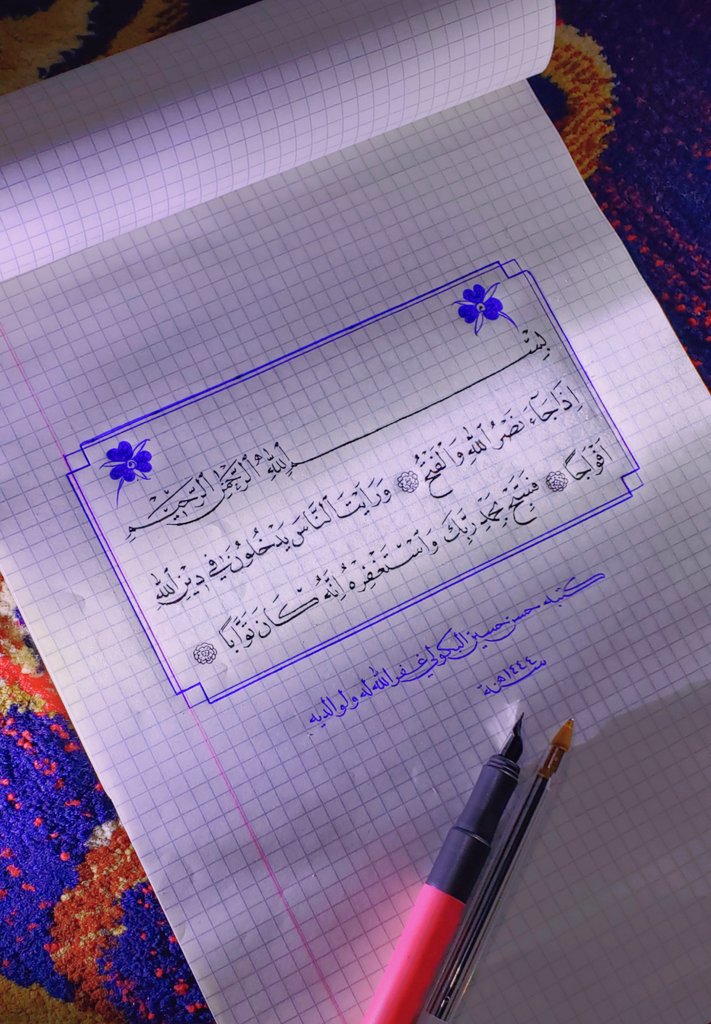 بِسْمِ اللهِ الرَّحْمٰنِ الرَّحِيْمِ
اِذَا جَآءَ نَصْرُ اللهِ وَالْفَتْحُ ۝ وَرَاَيْتَ النَّاسَ يَدْخُلُوْنَ فِيْ دِيْنِ اللهِ
اَفْوَاجًا ۝ فَسَبِّحْ بِحَمْدِ رَبِّكَ وَاسْتَغْفِرْهُ اِنَّهٗ كَانَ تَوَّابًا ۝
كتبه حسن حسين البكولي غفر الله له ولوالديه
سنة ١٤٤٤هـ